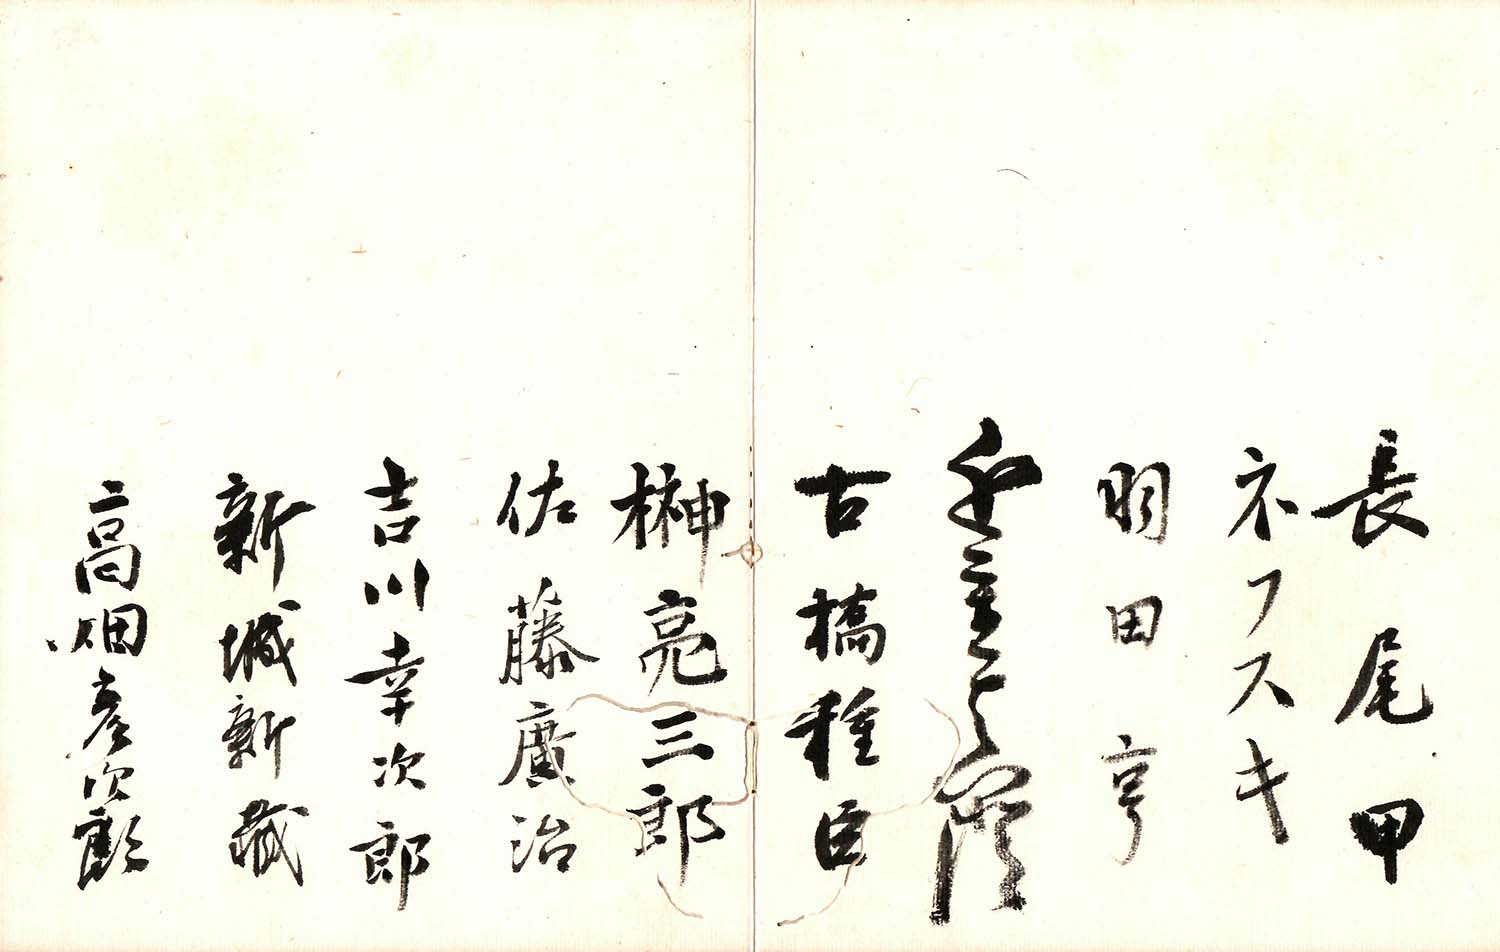 長尾甲
ネフスキ
羽田亨
近重真澄
古橋種臣
榊亮三郎
佐藤廣治
吉川幸次郎
新城新藏
高畑彦次郎